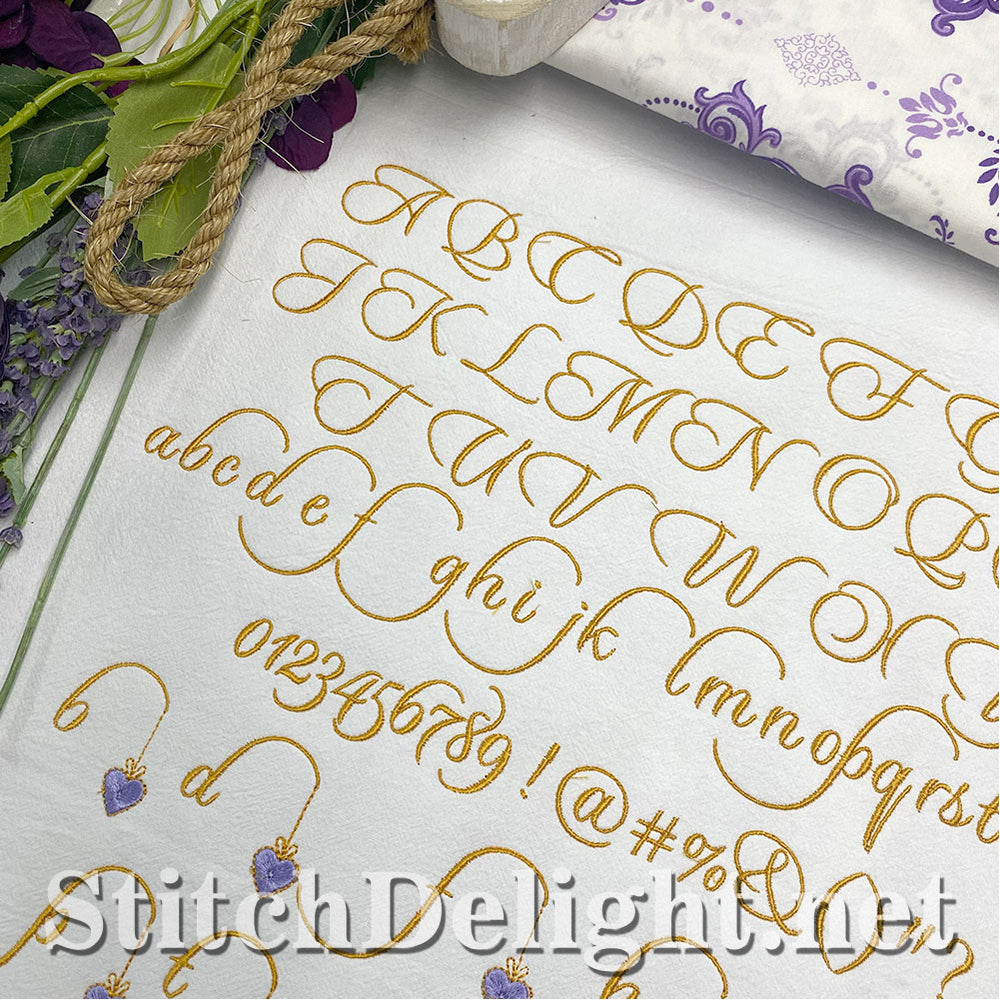 A B C D E F G
J K L M N O P Q
T U V W X
a b c d e f g h i j k l m n o p q r s t
0 1 2 3 4 5 6 7 8 9 ! @ # % & ( ) " ?
b
d
f
t
h
StitchDelight.net